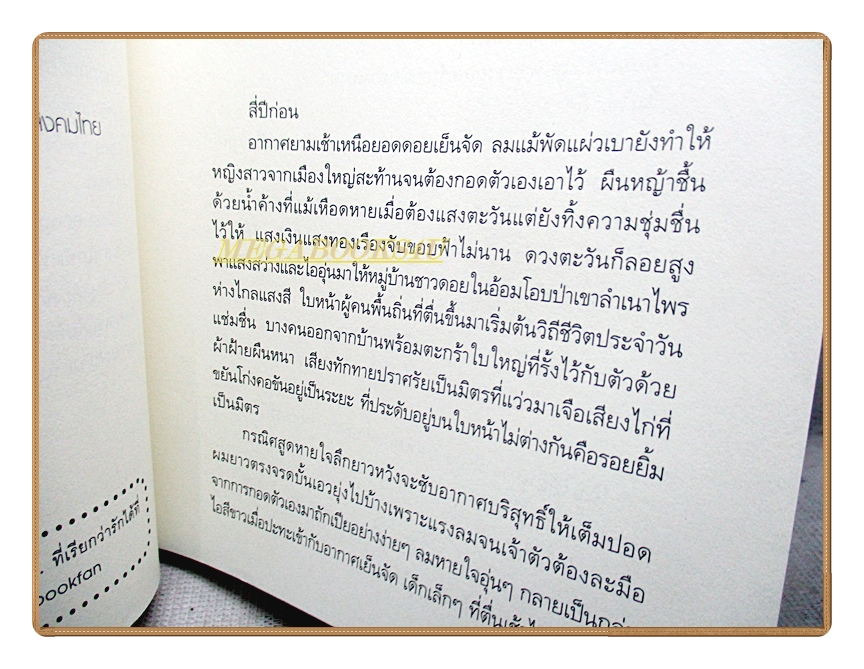 สังคมไทย
ที่เรียกว่ารักได้ที่
bookfan
สี่ปีก่อน
อากาศยามเช้าเหนือยอดดอยเย็นจัด ลมแม้พัดแผ่วเบายังทำให้
หญิงสาวจากเมืองใหญ่สะท้านจนต้องกอดตัวเองเอาไว้ ผืนหญ้าชื้น
ด้วยน้ำค้างที่แม้เหือดหายเมื่อต้องแสงตะวันแต่ยังทิ้งความชุ่มชื่น
ไว้ให้ แสงเงินแสงทองเรืองจับขอบฟ้าไม่นาน ดวงตะวันก็ลอยสูง
พาแสงสว่างและไออุ่นมาให้หมู่บ้านชาวดอยในอ้อมโอบป่าเขาลำเนาไพร
ห่างไกลแสงสี ใบหน้าผู้คนพื้นถิ่นที่ตื่นขึ้นมาเริ่มต้นวิถีชีวิตประจำวัน
แช่มชื่น บางคนออกจากบ้านพร้อมตะกร้าใบใหญ่ที่รั้งไว้กับตัวด้วย
ผ้าฝ้ายผืนหนา เสียงทักทายปราศรัยเป็นมิตรที่แว่วมาเจือเสียงไก่ที่
ขยันโก่งคอขันอยู่เป็นระยะ ที่ประดับอยู่บนใบหน้าไม่ต่างกันคือรอยยิ้ม
เป็นมิตร
กรณิศสูดหายใจลึกยาวหวังจะซับอากาศบริสุทธิ์ให้เต็มปอด
ผมยาวตรงจรดบั้นเอวยุ่งไปบ้างเพราะแรงลมจนเจ้าตัวต้องละมือ
จากการกอดตัวเองมาถักเปียอย่างง่ายๆ ลมหายใจอุ่นๆ กลายเป็น
ไอสีขาวเมื่อปะทะเข้ากับอากาศเย็นจัด เด็กเล็กๆ ที่ตื่น